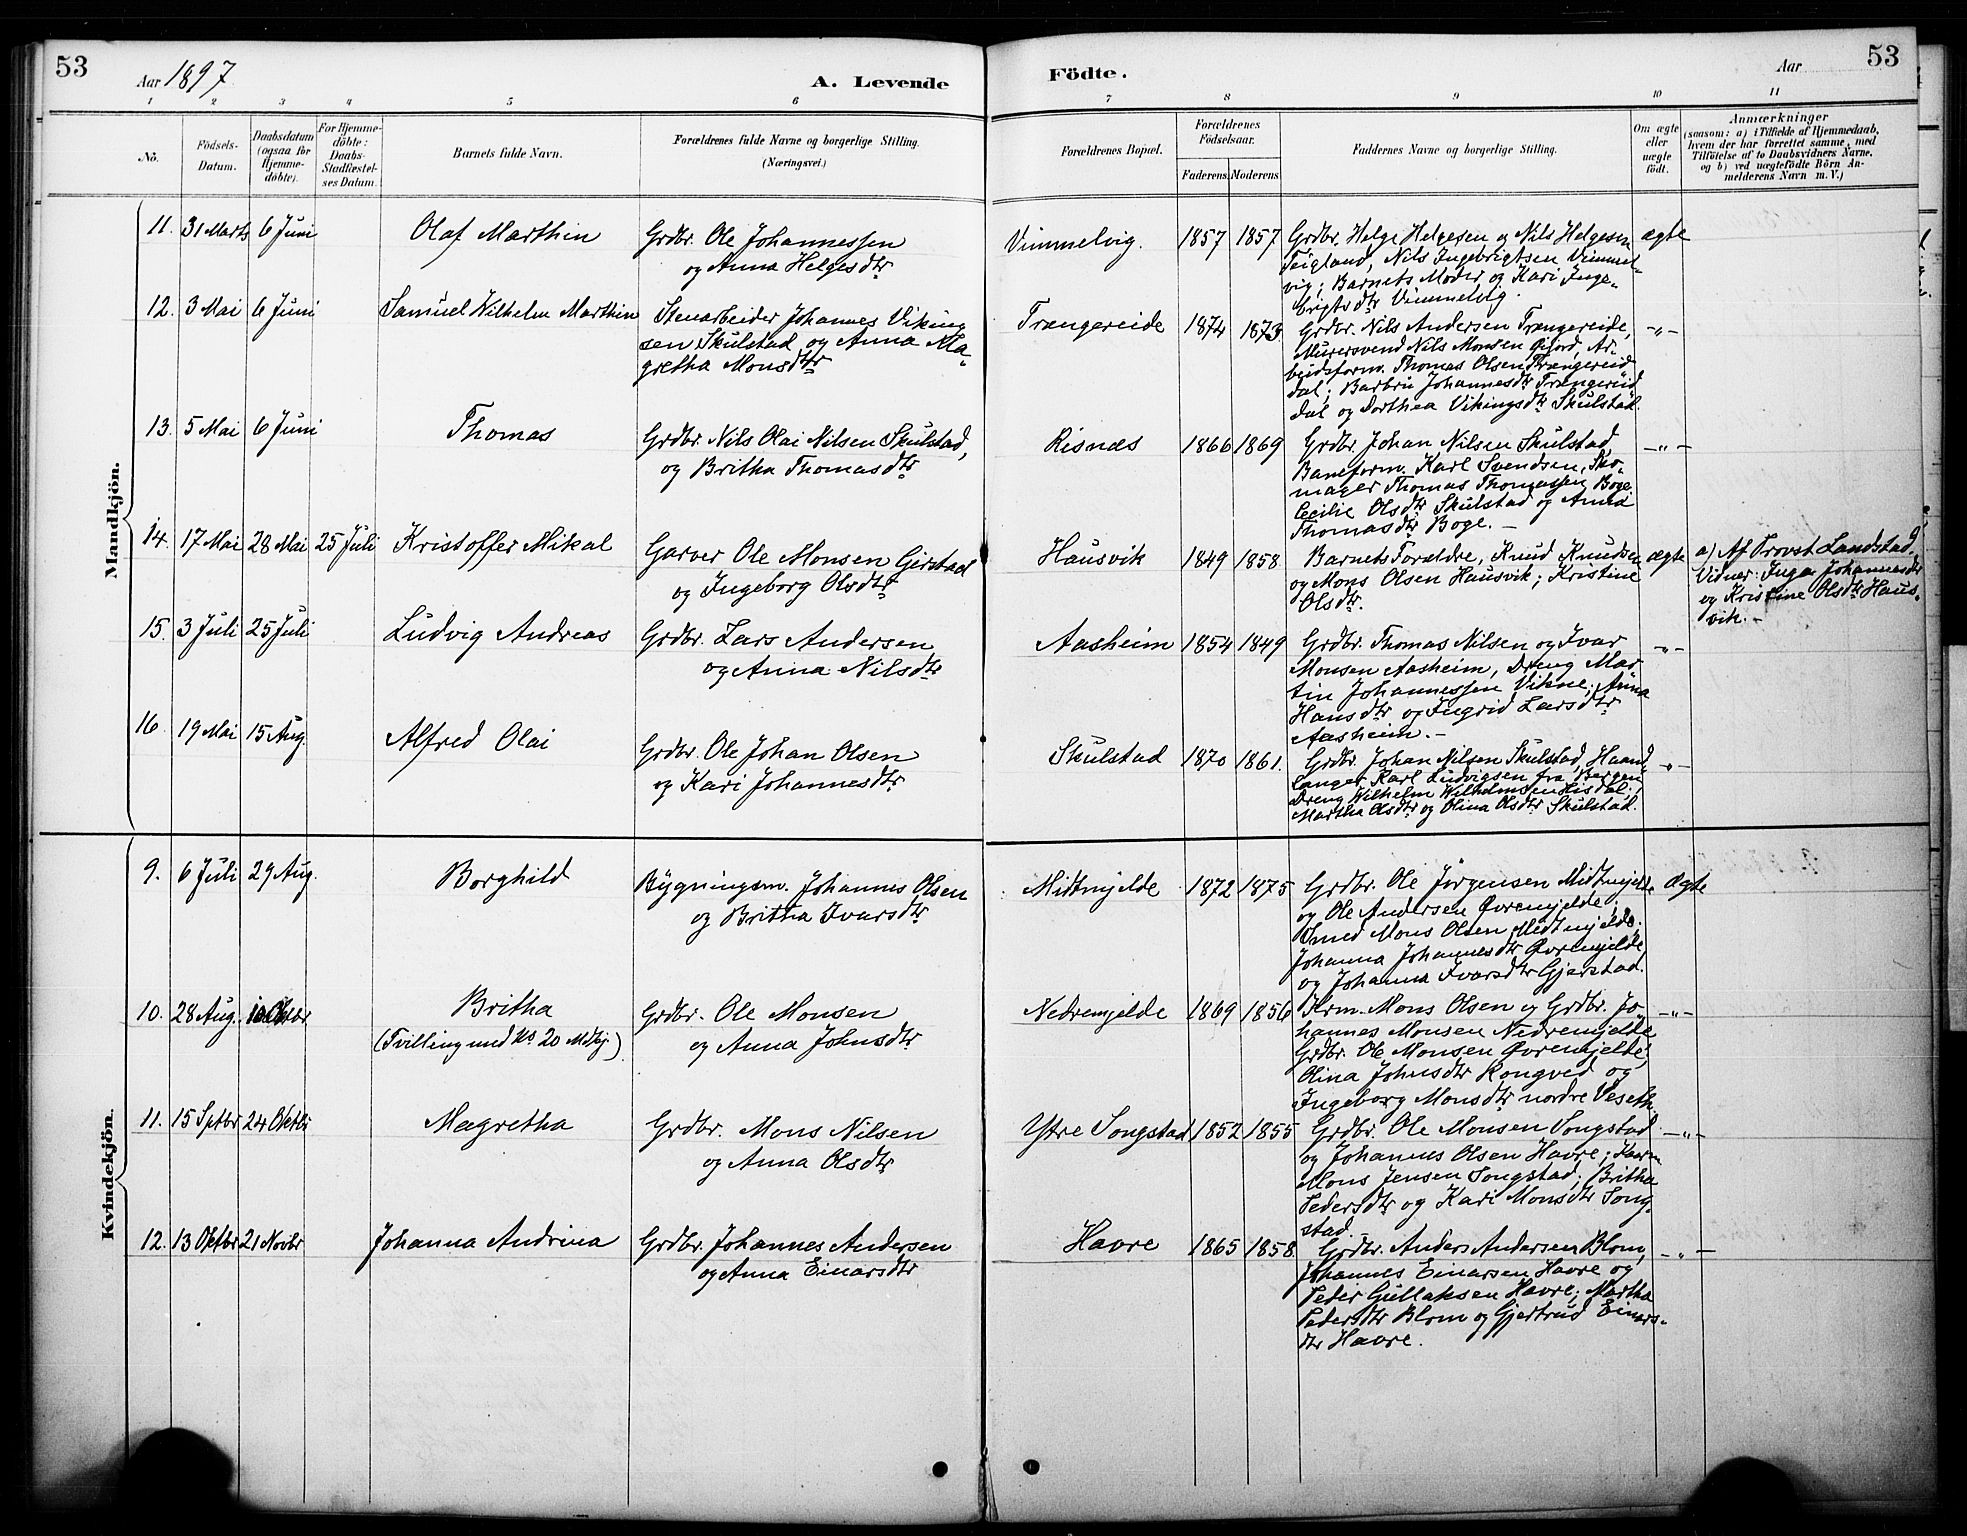 53
Aar 1897
A. Levende
Födte.
Aar
53
1 2 3 4 5 6 7 8 9 10 11
No.
Födsels-Datum.
Daabsdatum (ogsaa for Hjemme-döbte).
For Hjemme-döbte: Daabs-Stadfæstel-ses Datum.
Barnets fulde Navn.
Forældrenes fulde Navne og borgerlige Stilling.
(Næringsvei.)
Forældrenes Bopæl.
Forældrenes Födselsaar.
Faderens. Moderens.
Faddernes Navne og borgerlige Stilling.
Om ægte eller uægte födt.
Anmærkninger
(saasom: a) i Tilfælde af Hjemmedaab,
hvem der har forrettet samme, med
Tilföielse af to Daabsvidners Navne,
og b) ved uægtefödte Börn An-
melderens Navn m. V.)
Mandkjön.
11. 31 Marts 6 Juni Olaf Marthin Grdbr. Ole Johannessen
og Anna Helgesdtr
Vimmelvig. 1857 1857 Grdbr. Helge Helgesen og Nils Helgesen ægte
Teigland, Nils Ingebrigtsen Vimmel-
vig; Barnets Moder og Kari Inge-
brigtsdtr Vimmelvig.
12. 3 Mai 6 Juni Samuel Wilhelm Marthin Stenarbeider Johannes Viking
sen Skulstad og Anna Ma-
gretha Monsdtr
Trængereide 1874 1873 Grdbr. Nils Andersen Trængereide, -"-
Murersvend Nils Monsen Øfjord, Ar-
beidsform. Thomas Olsen Trængereid
dal; Barbru Johannesdtr Trængereid
dal og Dorthea Vikingsdtr Skulstad.
13. 5 Mai 6 Juni Thomas Grdbr. Nils Olai Nilsen Skulstad,
og Britha Thomasdtr
Risnæs 1866 1869 Grdbr. Johan Nilsen Skulstad, -"-
Baneform. Karl Svendsen, Sko-
mager Thomas Thomassen Boge
Cecilie Olsdtr Skulstad og Anna
Thomasdtr Boge. -
14. 17 Mai 28 Mai 25 Juli Kristoffer Mikal Garver Ole Monsen Gjerstad
og Ingeborg Olsdtr
Hausvik 1849 1858 Barnets Forældre, Knud Knudsen ægte
og Mons Olsen Hausvik; Kristine
Olsdtr.
a) Af Provst Landstad.
Vidner: Inga Johannesdtr
og Kristine Olsdtr Haus-
vik. -
15. 3 Juli 25 Juli Ludvig Andreas Grdbr. Lars Andersen
og Anna Nilsdtr
Aasheim 1854 1849 Grdbr. Thomas Nilsen og Ivar -"-
Monsen Aasheim, Dreng Mar
tin Johannessen Vikne; Anna
Hansdtr og Ingrid Larsdtr
Aasheim. -
16. 19 Mai 15 Aug. Alfred Olai Grdbr. Ole Johan Olsen
og Kari Johannesdtr
Skulstad 1870 1861. Grdbr. Johan Nilsen Skulstad, Haand- -"-
langer Karl Ludvigsen fra Bergen
Dreng Wilhelm Wilhelmsen Hisdal;
Martha Olsdtr og Olina Olsdtr Skulstad.
Kvindekjön.
9. 6 Juli 29 Aug. Borghild Bygningsm. Johannes Olsen
og Britha Ivarsdtr
Midtmjelde 1872 1875 Grdbr. Ole Jørgensen Midtmjelde Ægte
og Ole Andersen Øvremjelde,
Smed Mons Olsen Midtmjelde;
Johanna Johannesdtr Øvremjelde
og Johanna Ivarsdtr Gjerstad.
10. 28 Aug. Oktbr Britha Grdbr. Ole Monsen
(Tvilling med No 20 Mdkj.) og Anna Johnsdtr
Nedremjelde 1869 1856 Krm. Mons Olsen og Grdbr. Jo- -"-
hannes Monsen Nedremjelde
Grdbr. Ole Monsen Øvremjelde;
Olina Johnsdtr Rongved og
Ingeborg Monsdtr nordre Veseth.
11. 15 Sptbr 24 Oktbr Magretha Grdbr. Mons Nilsen
og Anna Olsdtr
Ytre Songstad 1852 1855 Grdbr. Ole Monsen Songstad -"-
og Johannes Olsen Havre;
Mons Jensen Songstad; Britha
Pedersdtr og Kari Monsdtr Song-
stad.
12. 13 Oktbr 21 Novbr Johanna Andrina Grdbr. Johannes Andersen
og Anna Einarsdtr
Havre 1865 1858. Grdbr. Anders Andersen Blom, -"-
Johannes Einarsen Havre og
Peder Gullaksen Havre; Martha
Pedersdtr Blom og Gjertrud Einars-
dtr Havre.